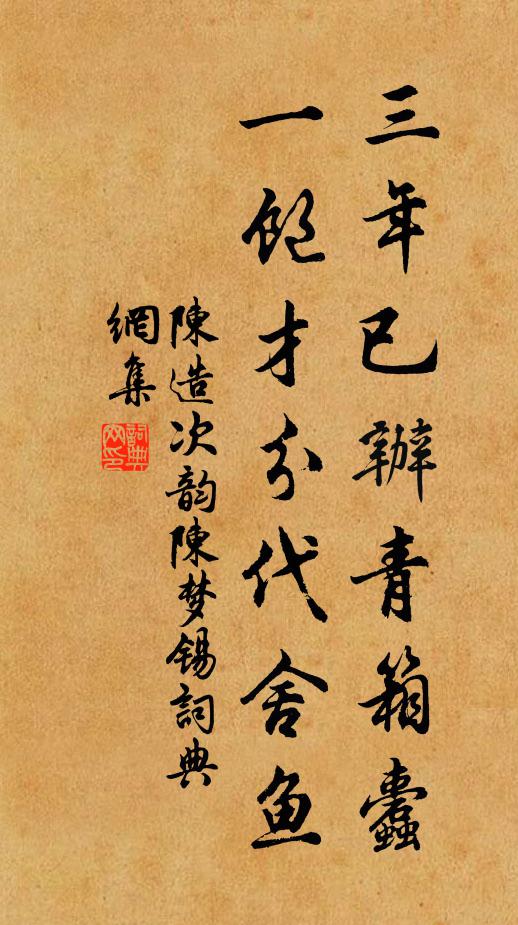 三年已辦青箱蠹
一飽才分代舍鱼
陳造次韵陳梦锡詞典
網集
詞典
网印